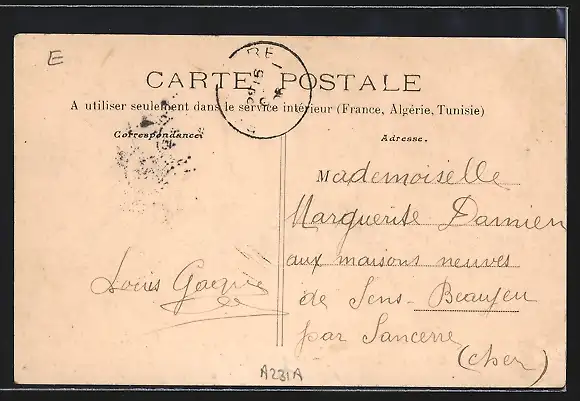 E
CARTE POSTALE
A utiliser seulement dans le service intérieur (France, Algérie, Tunisie)
Correspondance
Adresse.
Mademoiselle
Marguerite Damien
aux maisons neuves
de Sens-Beaujeu
par Sancerre
(Cher)
Louis
A231A